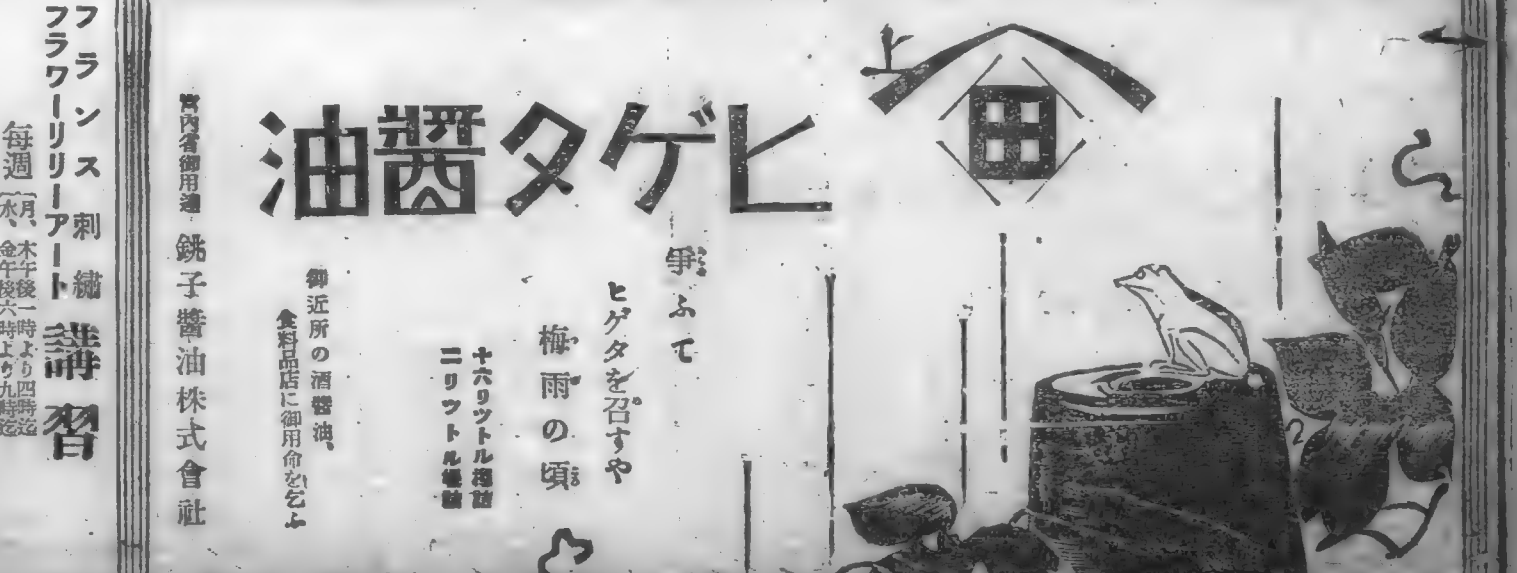 上
田
ヒゲタ醤油
爭ふて
ヒゲタを召すや
梅雨の頃
十六リツトル樽詰
二リツトル壜詰
御近所の酒醤油、
食料品店に御用命を乞ふ
宮內省御用達
銚子醬油株式會社
フランス刺繡
フラワーリリーアート
講習
每週
月、木午後一時より四時迄
水、金午後六時より九時迄